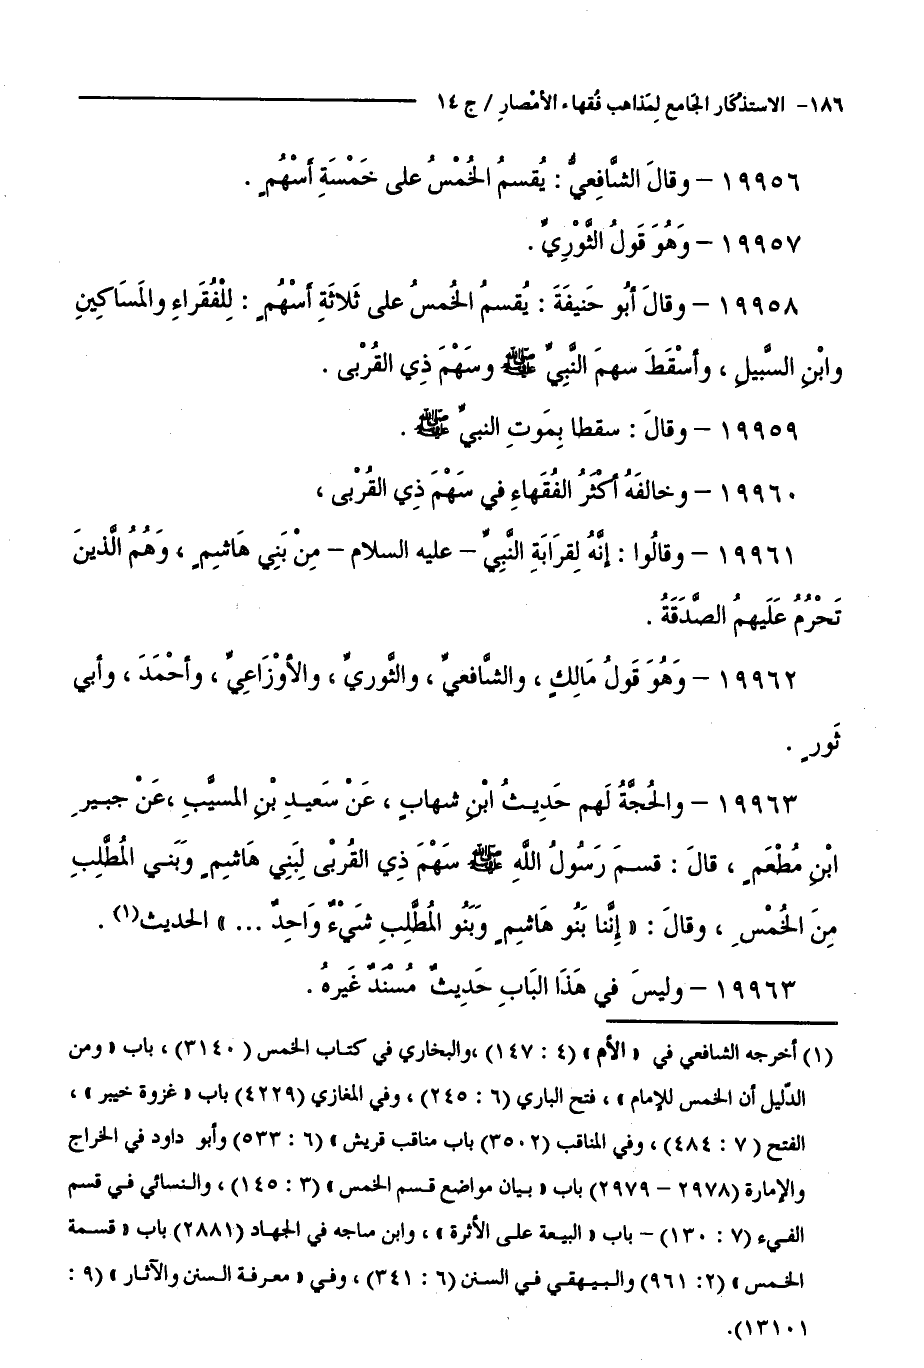 ١٨٦- الاستذْكَار الجَامع لِمَذاهب فُقهاء الأمْصار / ج ١٤
١٩٩٥٦ - وقالَ الشَّافِعيُّ : يُقسمُ الخُمْسُ على خَمْسَةِ أَسْهُمٍ .
١٩٩٥٧ - وَهُوَ قَولُ الثَّوْرِيِّ .
١٩٩٥٨ - وقالَ أبُو حَنيفَةَ : يُقسمُ الخُمسُ على ثَلاثَةِ أَسْهُمٍ : لِلْفُقَراءِ والمَسَاكِينِ
وابْنِ السَّبيلِ ، وأسْقَطَ سهمَ النَّبِيِّ ﷺ وسَهْمَ ذِي القُرْبى .
١٩٩٥٩ - وقالَ : سقطا بِمَوتِ النبيِّ ﷺ .
١٩٩٦٠ - وخالفَهُ أكْثَرُ الفُقَهاءِ في سَهْمَ ذِي القُرْبى ،
١٩٩٦١ - وقالُوا : إنَّهُ لِقرَابَةِ النَّبِيِّ - عليه السلام - مِنْ بَنِي هَاشِمٍ ، وَهُمُ الَّذينَ
تَحْرُمُ عَلَيهمُ الصَّدَقَةُ .
١٩٩٦٢ - وَهُوَ قَولُ مَالِكٍ ، والشَّافعيِّ ، والثَّوريِّ ، والأوْزَاعِيِّ ، وأحْمَدَ ، وأبي
ثَورٍ .
١٩٩٦٣ - والحُجَّةُ لَهم حَدِيثُ ابْنِ شهابٍ ، عَنْ سَعَيدِ بْنِ المسيَّبِ ،عَنْ جبيرِ
ابْنِ مُطْعَمٍ ، قالَ : قسمَ رَسُولُ اللَّهِ ﷺ سَهْمَ ذِي القُرْبْى لِبَنِي هَاشِمٍ وَبَنِي المُطَّلِبِ
مِنَ الخُمْسِ ، وقالَ : « إنَّنا بَنُو هَاشِمٍ وَبَنُو المُطَّلِبِ شَيْءٌ وَاحِدٌ ... » الحديث(١) .
١٩٩٦٣ - وليسَ في هَذَا البَابِ حَدِيثٌ مُسْنَدٌ غَيرهُ .
(١) أخرجه الشافعي في « الأم » (٤ : ١٤٧) ،والبخاري في كتاب الخمس ( ٣١٤٠) ، باب « ومن
الدّليل أن الخمس للإمام » ، فتح الباري (٦ : ٢٤٥) ، وفي المغازي (٤٢٢٩) باب « غزوة خيبر » ،
الفتح ( ٧ : ٤٨٤) ، وفي المناقب (٣٥٠٢) باب مناقب قريش » (٦ : ٥٣٣) وأبو داود في الخراج
والإمارة (٢٩٧٨ - ٢٩٧٩) باب « بيان مواضع قسم الخمس » (٣ : ١٤٥) ، والنسائي في قسم
الفيء (٧ : ١٣٠) - باب « البيعة على الأثرة » ، وابن ماجه في الجهاد (٢٨٨١) باب « قسمة
الخمس » (٢: ٩٦١) والبيهقي في السنن (٦ : ٣٤١) ، وفي « معرفة السنن والآثار » (٩ :
١٣١٠١).